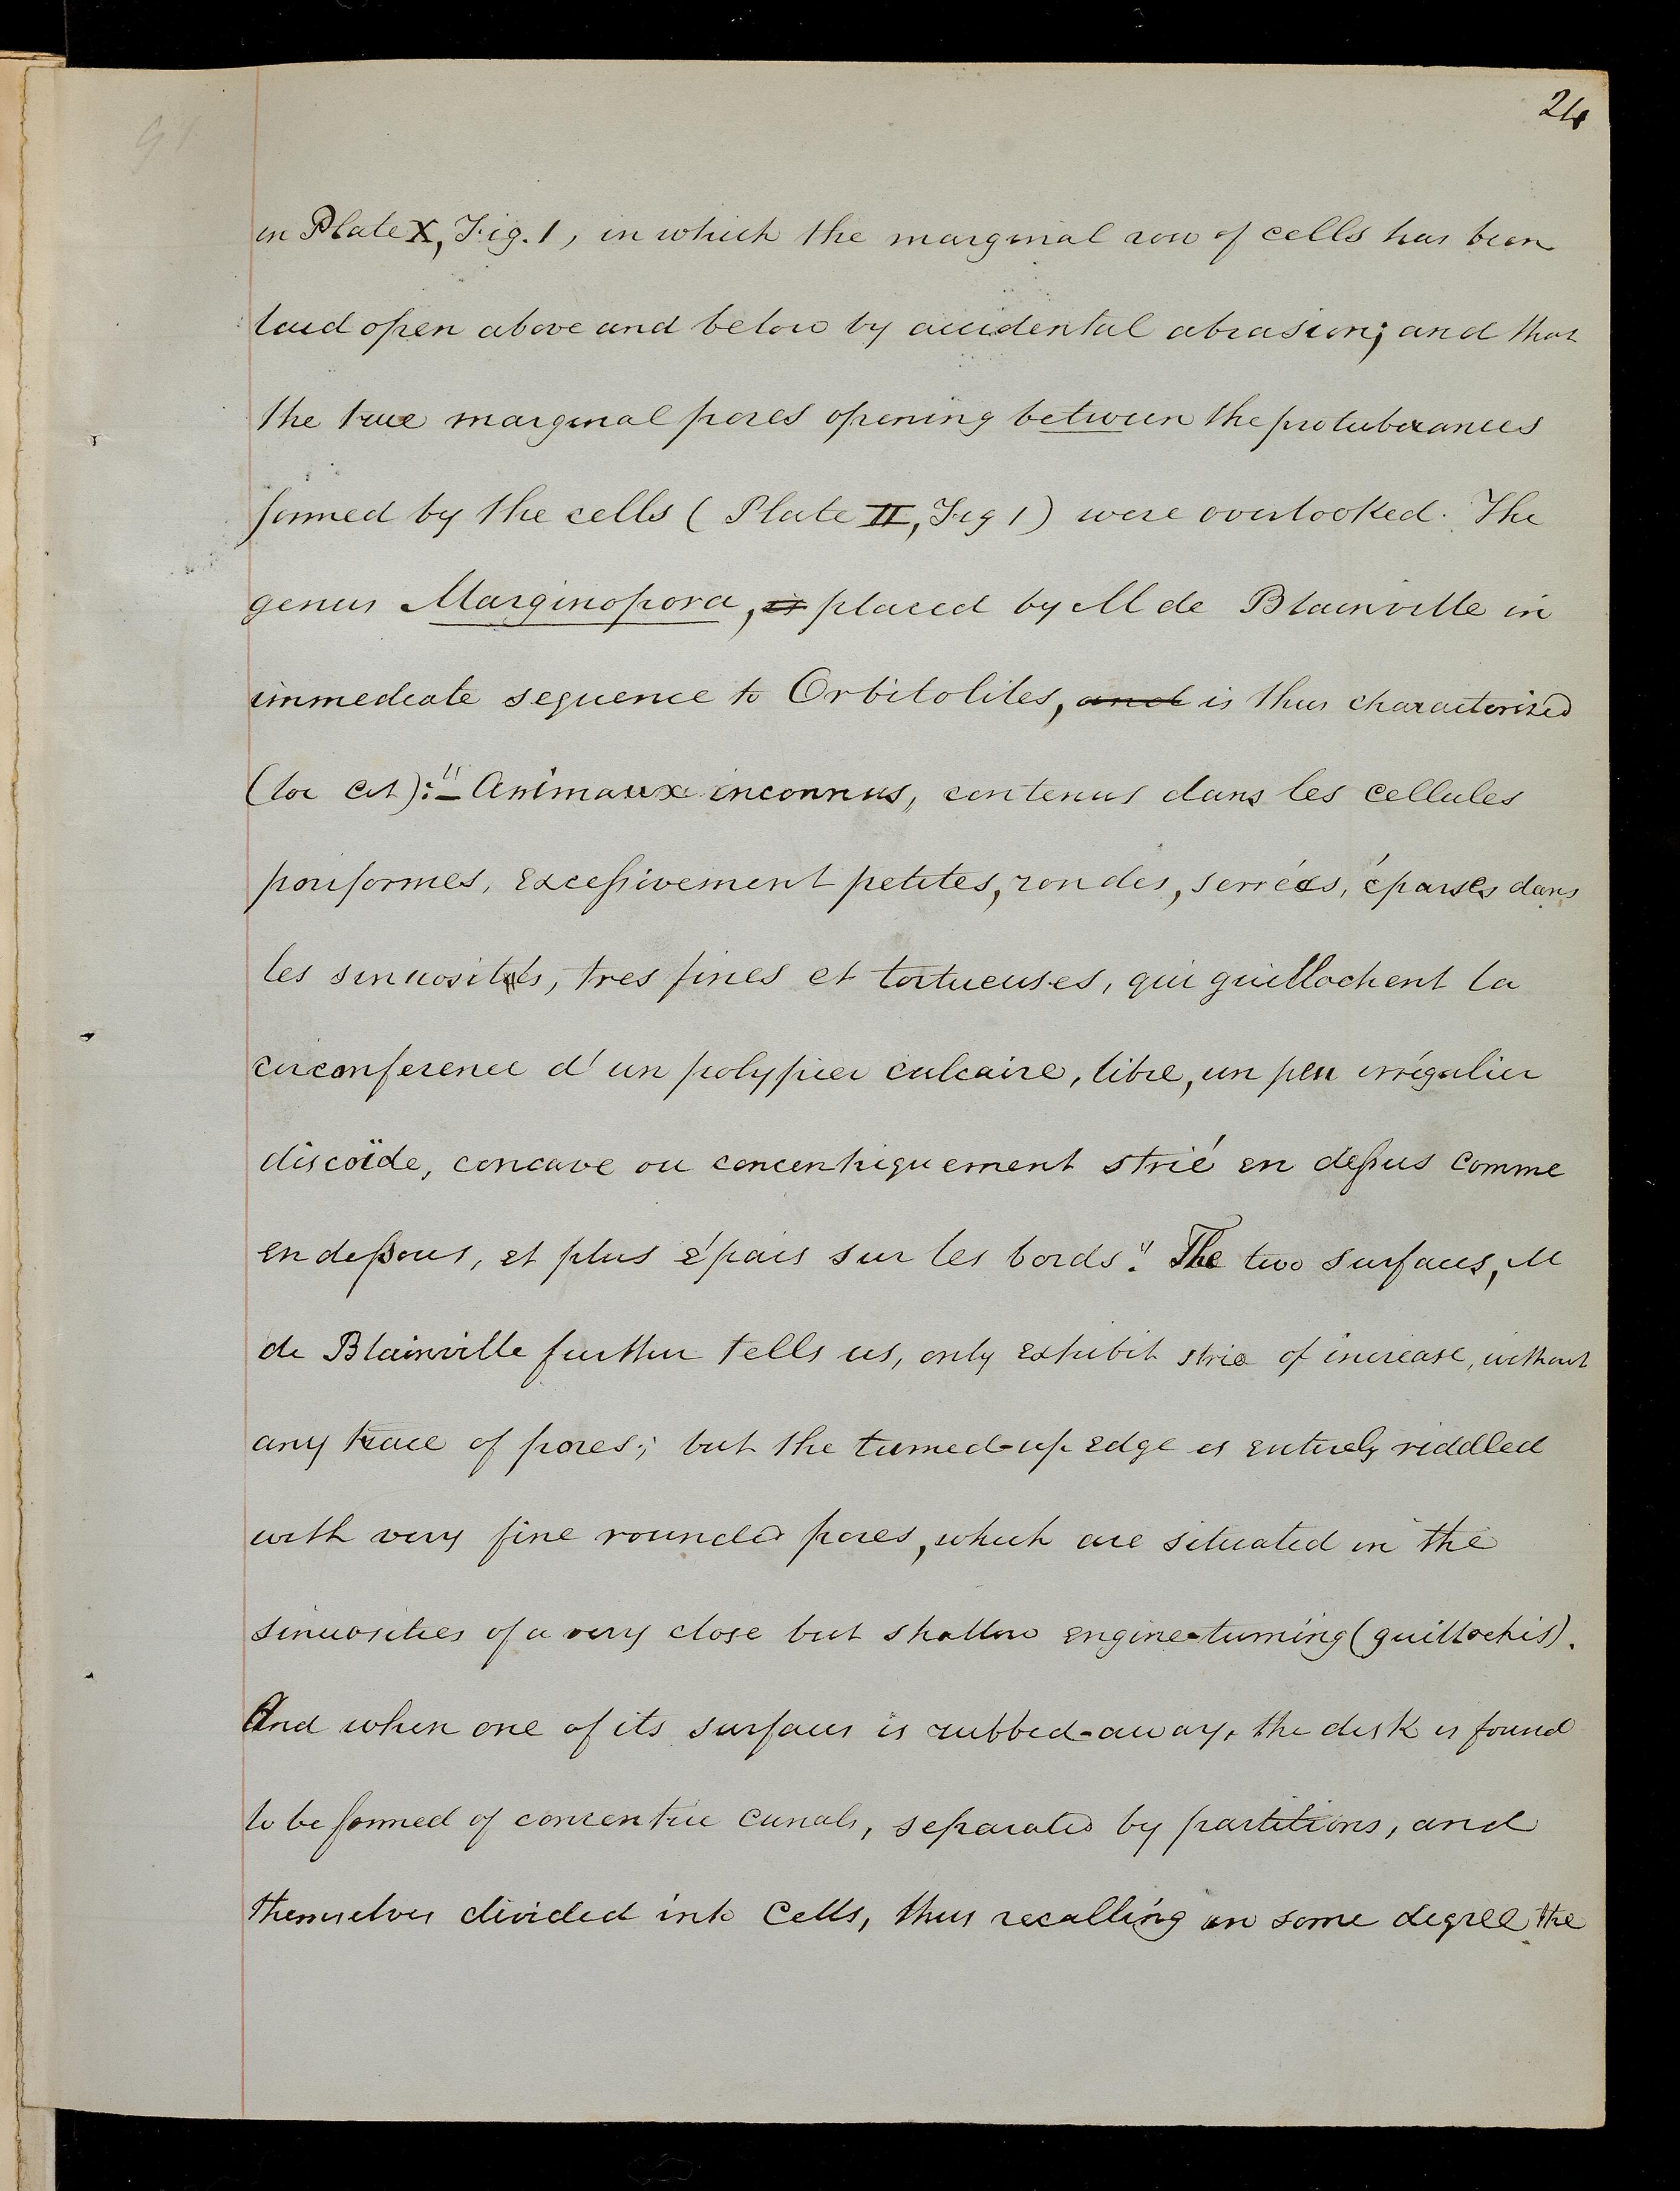 24
in Plate X, Fig. 1, in which the marginal row of cells has been
laid open above and below by accidental abrasion; and that
the true marginal pores opening between the protuberances
formed by the cells (Plate II, Fig 1) were overlooked. The
genus Marginopora, is placed by M de Blainville in
immediate sequence to Orbitolites, and is thus characterized
(loc cit):—"Animaux inconnus, contenus dans les cellules
poriformes, excessivement petites, rondes, serrées, éparses dans
les sinuosités, tres fines et tortueuses, qui guillochent la
circonference d'un polypier calcaire, libre, un peu irrégulier
discoïde, concave ou concentriquement strié en dessus comme
en dessous, et plus épais sur les bords". The two surfaces, M
de Blainville further tells us, only exhibit striæ of increase, without
any trace of pores; but the turned-up edge is entirely riddled
with very fine rounded pores, which are situated in the
sinuosities of a very close but shallow engine-turning (guillochis).
And when one of its surfaces is rubbed-away, the disk is found
to be formed of concentric canals, separated by partitions, and
themselves divided into cells, thus recalling in some degree the